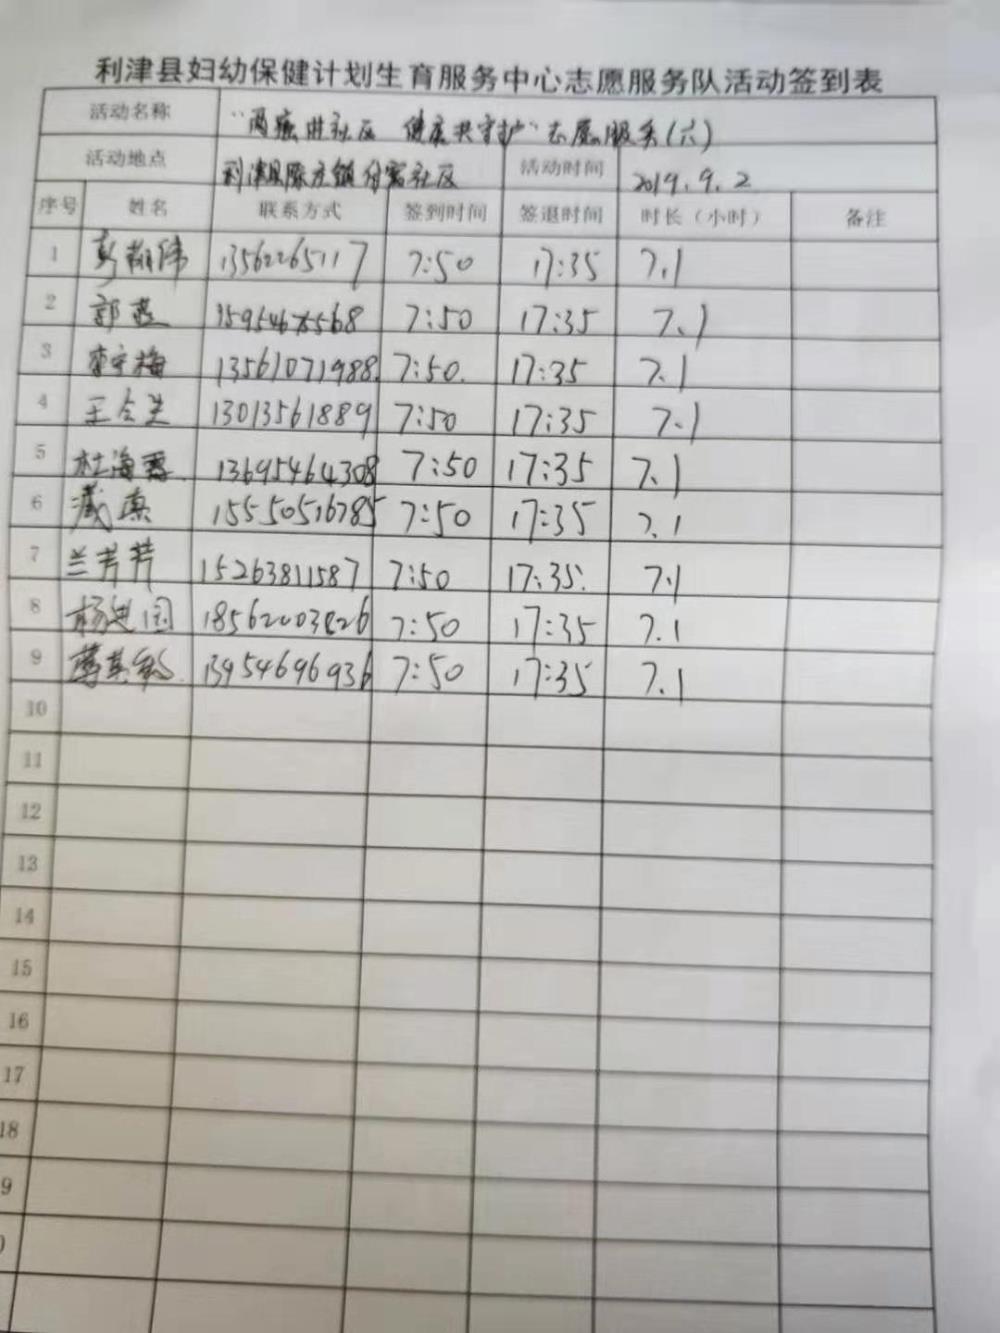 利津县妇幼保健计划生育服务中心志愿服务队活动签到表
活动名称 "两癌进社区 健康共守护"志愿服务(六)
活动地点 利津县陈庄镇付窝社区 活动时间 2019.9.2
序号 姓名 联系方式 签到时间 签退时间 时长（小时） 备注
1 7:50 17:35 7.1
2 郭燕 7:50 17:35 7.1
3 13561071988 7:50 17:35 7.1
4 13013561889 7:50 17:35 7.1
5 杜海霞 13695464308 7:50 17:35 7.1
6 15550516785 7:50 17:35 7.1
7 兰芳芳 15263811587 7:50 17:35 7.1
8 杨建国 7:50 17:35 7.1
9 13954696936 7:50 17:35 7.1
10
11
12
13
14
15
16
17
18
9